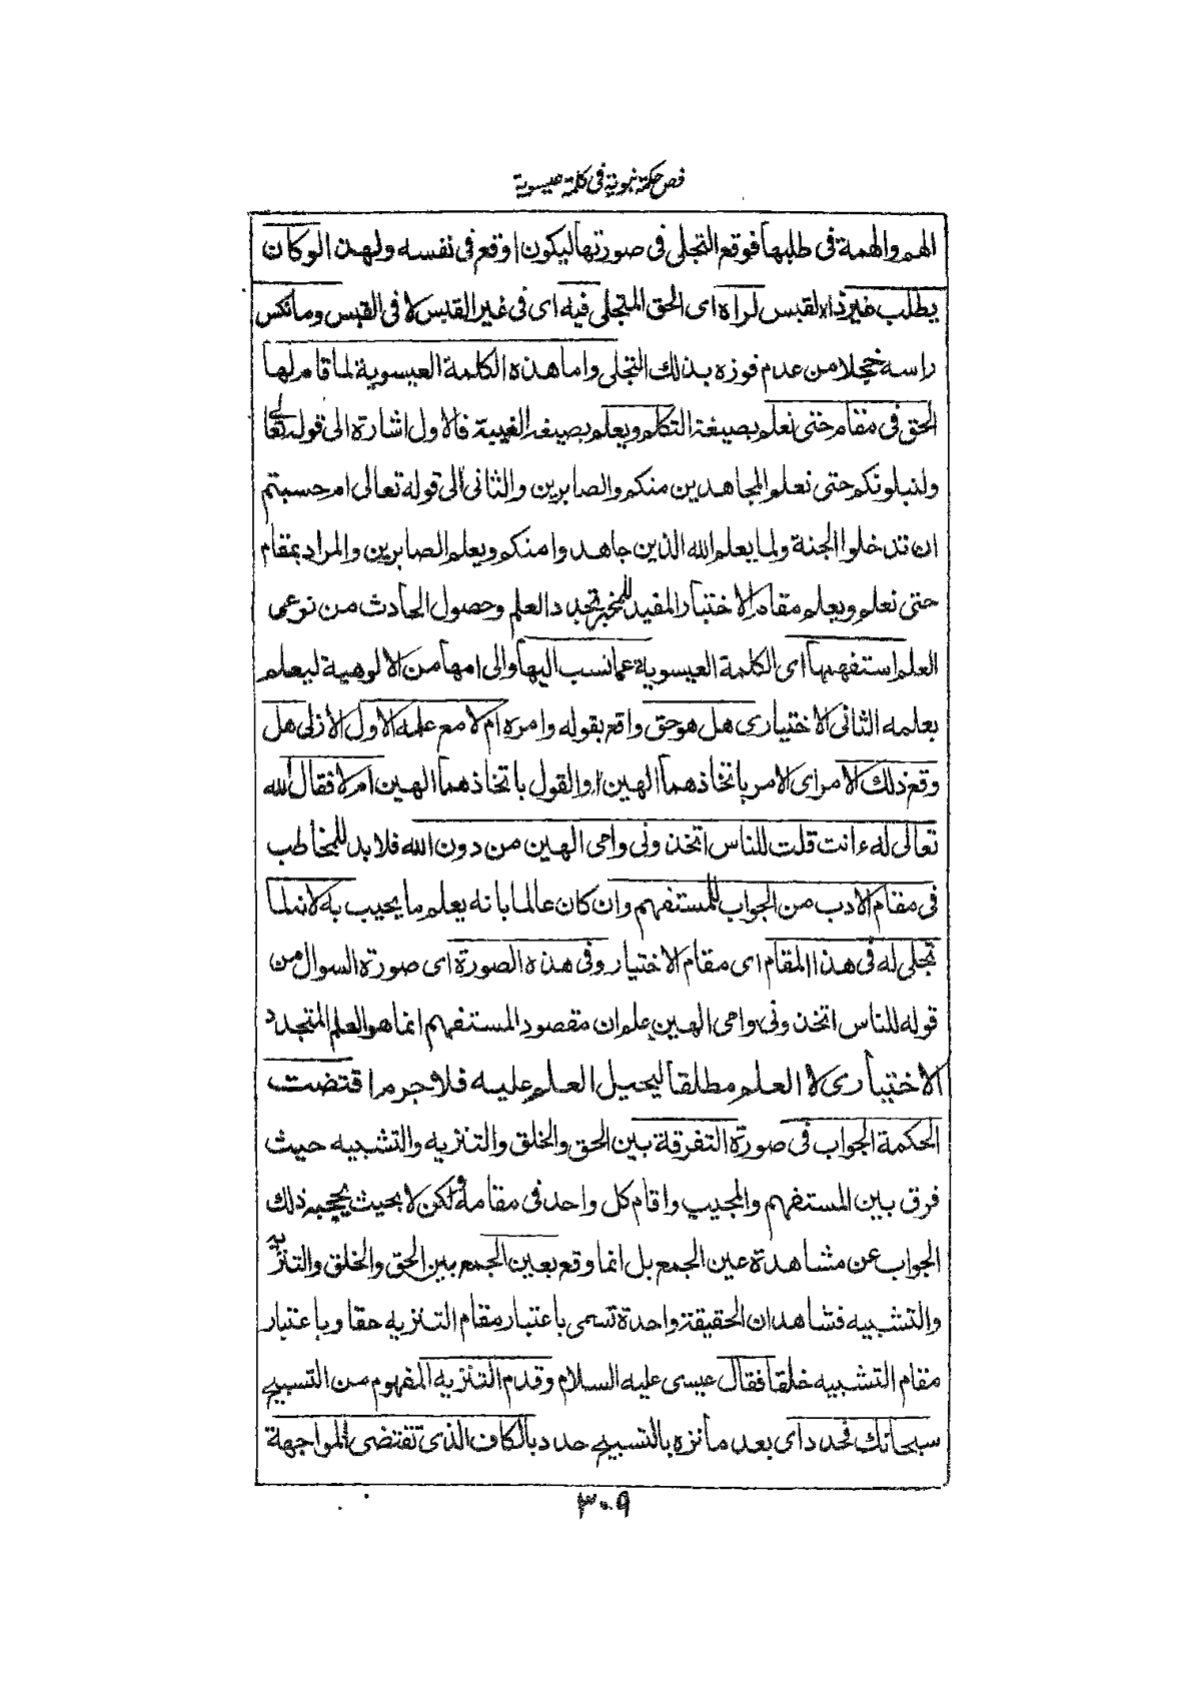 فص حكمة نبوية فى كلمة عيسوية
الهم والهمة فى طلبها فوقع التجلى فى صورتها ليكون اوقع فى نفسه ولهذا لو كان
يطلب غير ذا القبس لراه اى الحق المتجلى فيه اى فى غير القبس لا فى القبس وما نكس
راسه خجلا من عدم فوزه بذلك التجلى واما هذه الكلمة العيسوية لما قام لها
الحق فى مقام حتى نعلم بصيغة التكلم ويعلم بصيغة الغيبة فالاول اشارة الى قوله تعالى
ولنبلونكم حتى نعلم المجاهدين منكم والصابرين والثانى الى قوله تعالى ام حسبتم
ان تدخلوا الجنة ولما يعلم الله الذين جاهدوا منكم ويعلم الصابرين والمراد بمقام
حتى نعلم ويعلم مقام الاختبار المفيد للمخبر تجدد العلم وحصول الحادث من نوعى
العلم استفهمها اى الكلمة العيسوية عما نسب اليها والى امها من الالوهية ليعلم
بعلمه الثانى الاختيارى هل هو حق واقع بقوله وامره ام لا مع علمه الاول الازلى هل
وقع ذلك الامر اى الامر باتخاذهما الهين او القول باتخاذهما الهين ام لا فقال الله
تعالى له ءانت قلت للناس اتخذونى وامى الهين من دون الله فلا بد للمخاطب
فى مقام الادب من الجواب للمستفهم وان كان عالما بانه يعلم ما يجيب به لانه لما
تجلى له فى هذا المقام اى مقام الاختيار وفى هذه الصورة اى صورة السوال من
قوله للناس اتخذونى وامى الهين علم ان مقصود المستفهم انما هو العلم المتجدد
الاختيارى لا العلم مطلقا ليحيل العلم عليه فلا جرم اقتضت
الحكمة الجواب فى صورة التفرقة بين الحق والخلق والتنزيه والتشبيه حيث
فرق بين المستفهم والمجيب واقام كل واحد فى مقامه ولكن لا بحيث يحجبه ذلك
الجواب عن مشاهدة عين الجمع بل انما وقع بعين الجمع بين الحق والخلق والتنزيه
والتشبيه فشاهد ان الحقيقة واحدة تسمى باعتبار مقام التنزيه حقا وباعتبار
مقام التشبيه خلقا فقال عيسى عليه السلام وقدم التنزيه المفهوم من التسبيح
سبحانك فحدد اى بعد ما نزه بالتسبيح حدد بالكاف الذى تقتضى المواجهة
٣٠٩